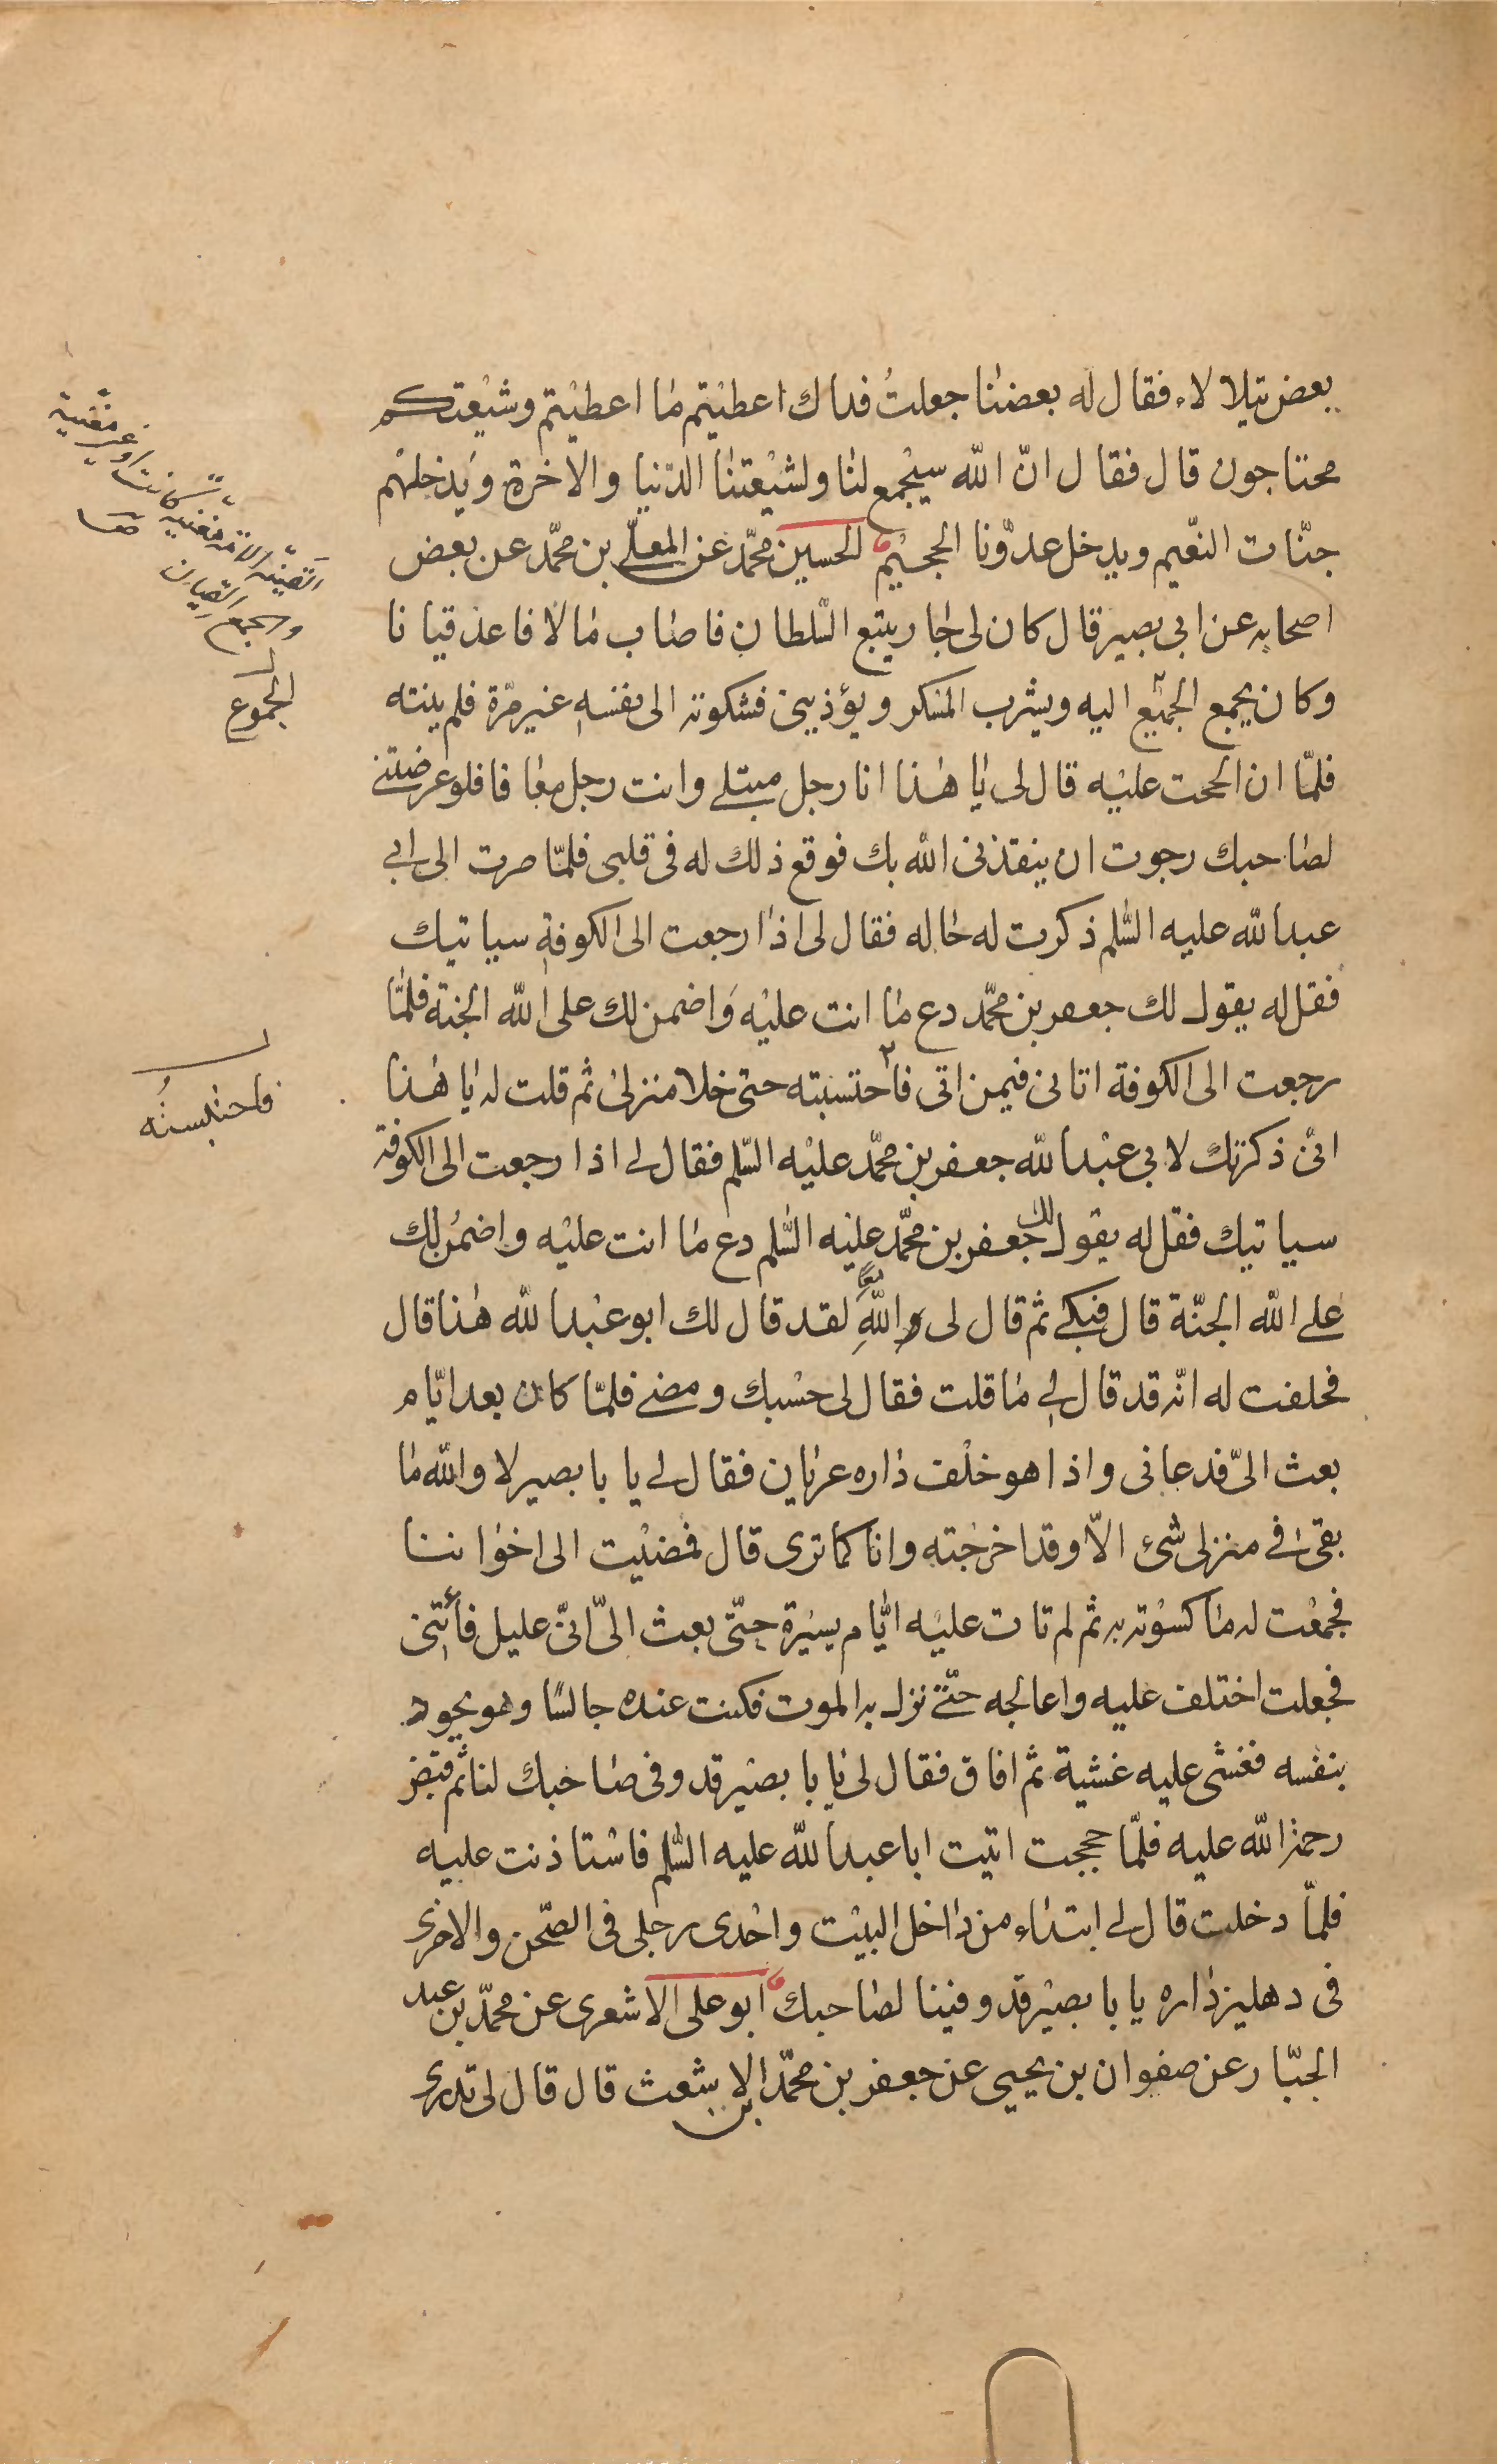 بعض يتلالاء فقال له بعضنا جعلتُ فداك اعطيتم ما اعطيتم وشيعتكم
محتاجون قال فقال انّ الله سيجمع لنا ولشيعتنا الدّنيا والاخرة ويدخلهم
جنّات النعّيم ويدخل عدوّنا الجحيم الحسين محمّد عن المعلّى بن محمّد عن بعض
اصحابه عن ابى بصير قال كان لى جار يتبع السّلطان فاصاب مالا فاعد قيانا
وكان يجمع الجميع اليه ويشرب المسكر ويؤذينى فشكوته الى نفسه غير مرّة فلم ينته
فلمّا ان الححت عليه قال لى يا هذا انا رجل مبتلى وانت رجل معافا فلو عرضتنى
لصاحبك رجوت ان ينقذنى الله بك فوقع ذلك له فى قلبى فلمّا صرت الى ابى
عبد الله عليه السّلم ذكرت له حاله فقال لى اذا رجعت الى الكوفة سياتيك
فقل له يقول لك جعفر بن محمّد دع ما انت عليه واضمن لك على الله الجنة فلمّا
رجعت الى الكوفة اتانى فيمن اتى فاحتسبته حتى خلا منزلى ثم قلت له يا هذا
انّى ذكرتك لابى عبد الله جعفر بن محمّد عليه السّلم فقال لى اذا رجعت الى الكوفة
سياتيك فقل له يقول لك جعفر بن محمّد عليه السّلم دع ما انت عليه واضمن لك
على الله الجنّة قال فبكى ثم قال لى والله لقد قال لك ابو عبد الله هذا قال
فحلفت له انّه قد قال لى ما قلت فقال لى حسبك ومضى فلمّا كان بعد ايّام
بعث الىّ فدعانى واذا هو خلف داره عريان فقال لى يا با بصير لا والله ما
بقى فى منزلى شىء الّا وقد اخرجته وانا كما ترى قال فمضيت الى اخواننا
فجمعت له ما كسوته به ثم لم تات عليه ايّام يسيرة حتّى بعث الىّ انّى عليل فأتنى
فجعلت اختلف عليه واعالجه حتّى نزل به الموت فكنت عنده جالسًا وهو يجود
بنفسه فغشى عليه غشية ثم افاق فقال لى يا با بصير قد وفى صاحبك لنا ثم قبض
رحمة الله عليه فلمّا حججت اتيت ابا عبد الله عليه السّلم فاستاذنت عليه
فلمّا دخلت قال لى ابتداء من داخل البيت واحدى رجلى فى الصّحن والاخرى
فى دهليز داره يا با بصير قد وفينا لصاحبك ابو على الاشعرى عن محمّد بن عبد
الجبّار عن صفوان بن يحيى عن جعفر بن محمّد بن الاشعث قال قال لى تدرى
القينة الامة مغنية كانت او غير مغنية
والجمع القيان
الجموع
فاحتبسته